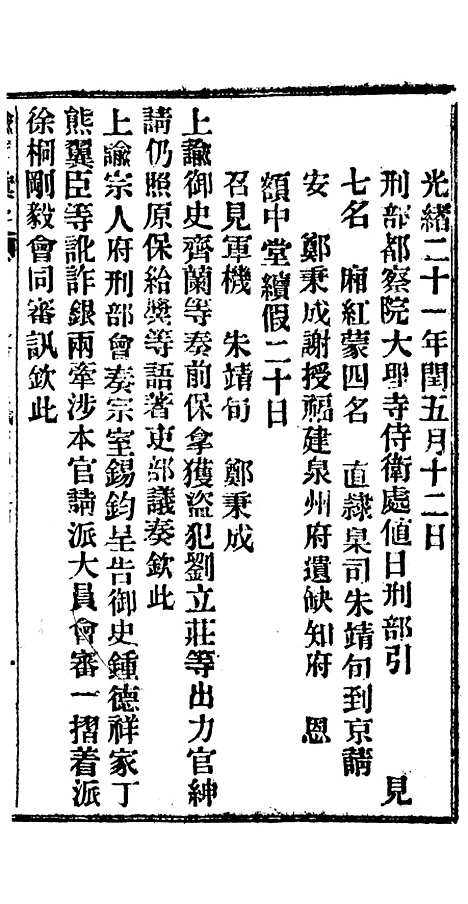 光緒二十一年閏五月十二日
刑部都察院大理寺侍衛處値日刑部引 見
七名 廂紅蒙四名 直隷臬司朱靖旬到京請
安 鄭秉成謝授福建泉州府遺缺知府 恩
額中堂續假二十日
召見軍機 朱靖旬 鄭秉成
上諭御史齊蘭等奏前保拿獲盜犯劉立莊等出力官紳
請仍照原保給獎等語著吏部議奏欽此
上諭宗人府刑部會奏宗室錫鈞呈告御史鍾德祥家丁
熊翼臣等訛詐銀兩牽涉本官請派大員會審一摺着派
徐桐剛毅會同審訊欽此